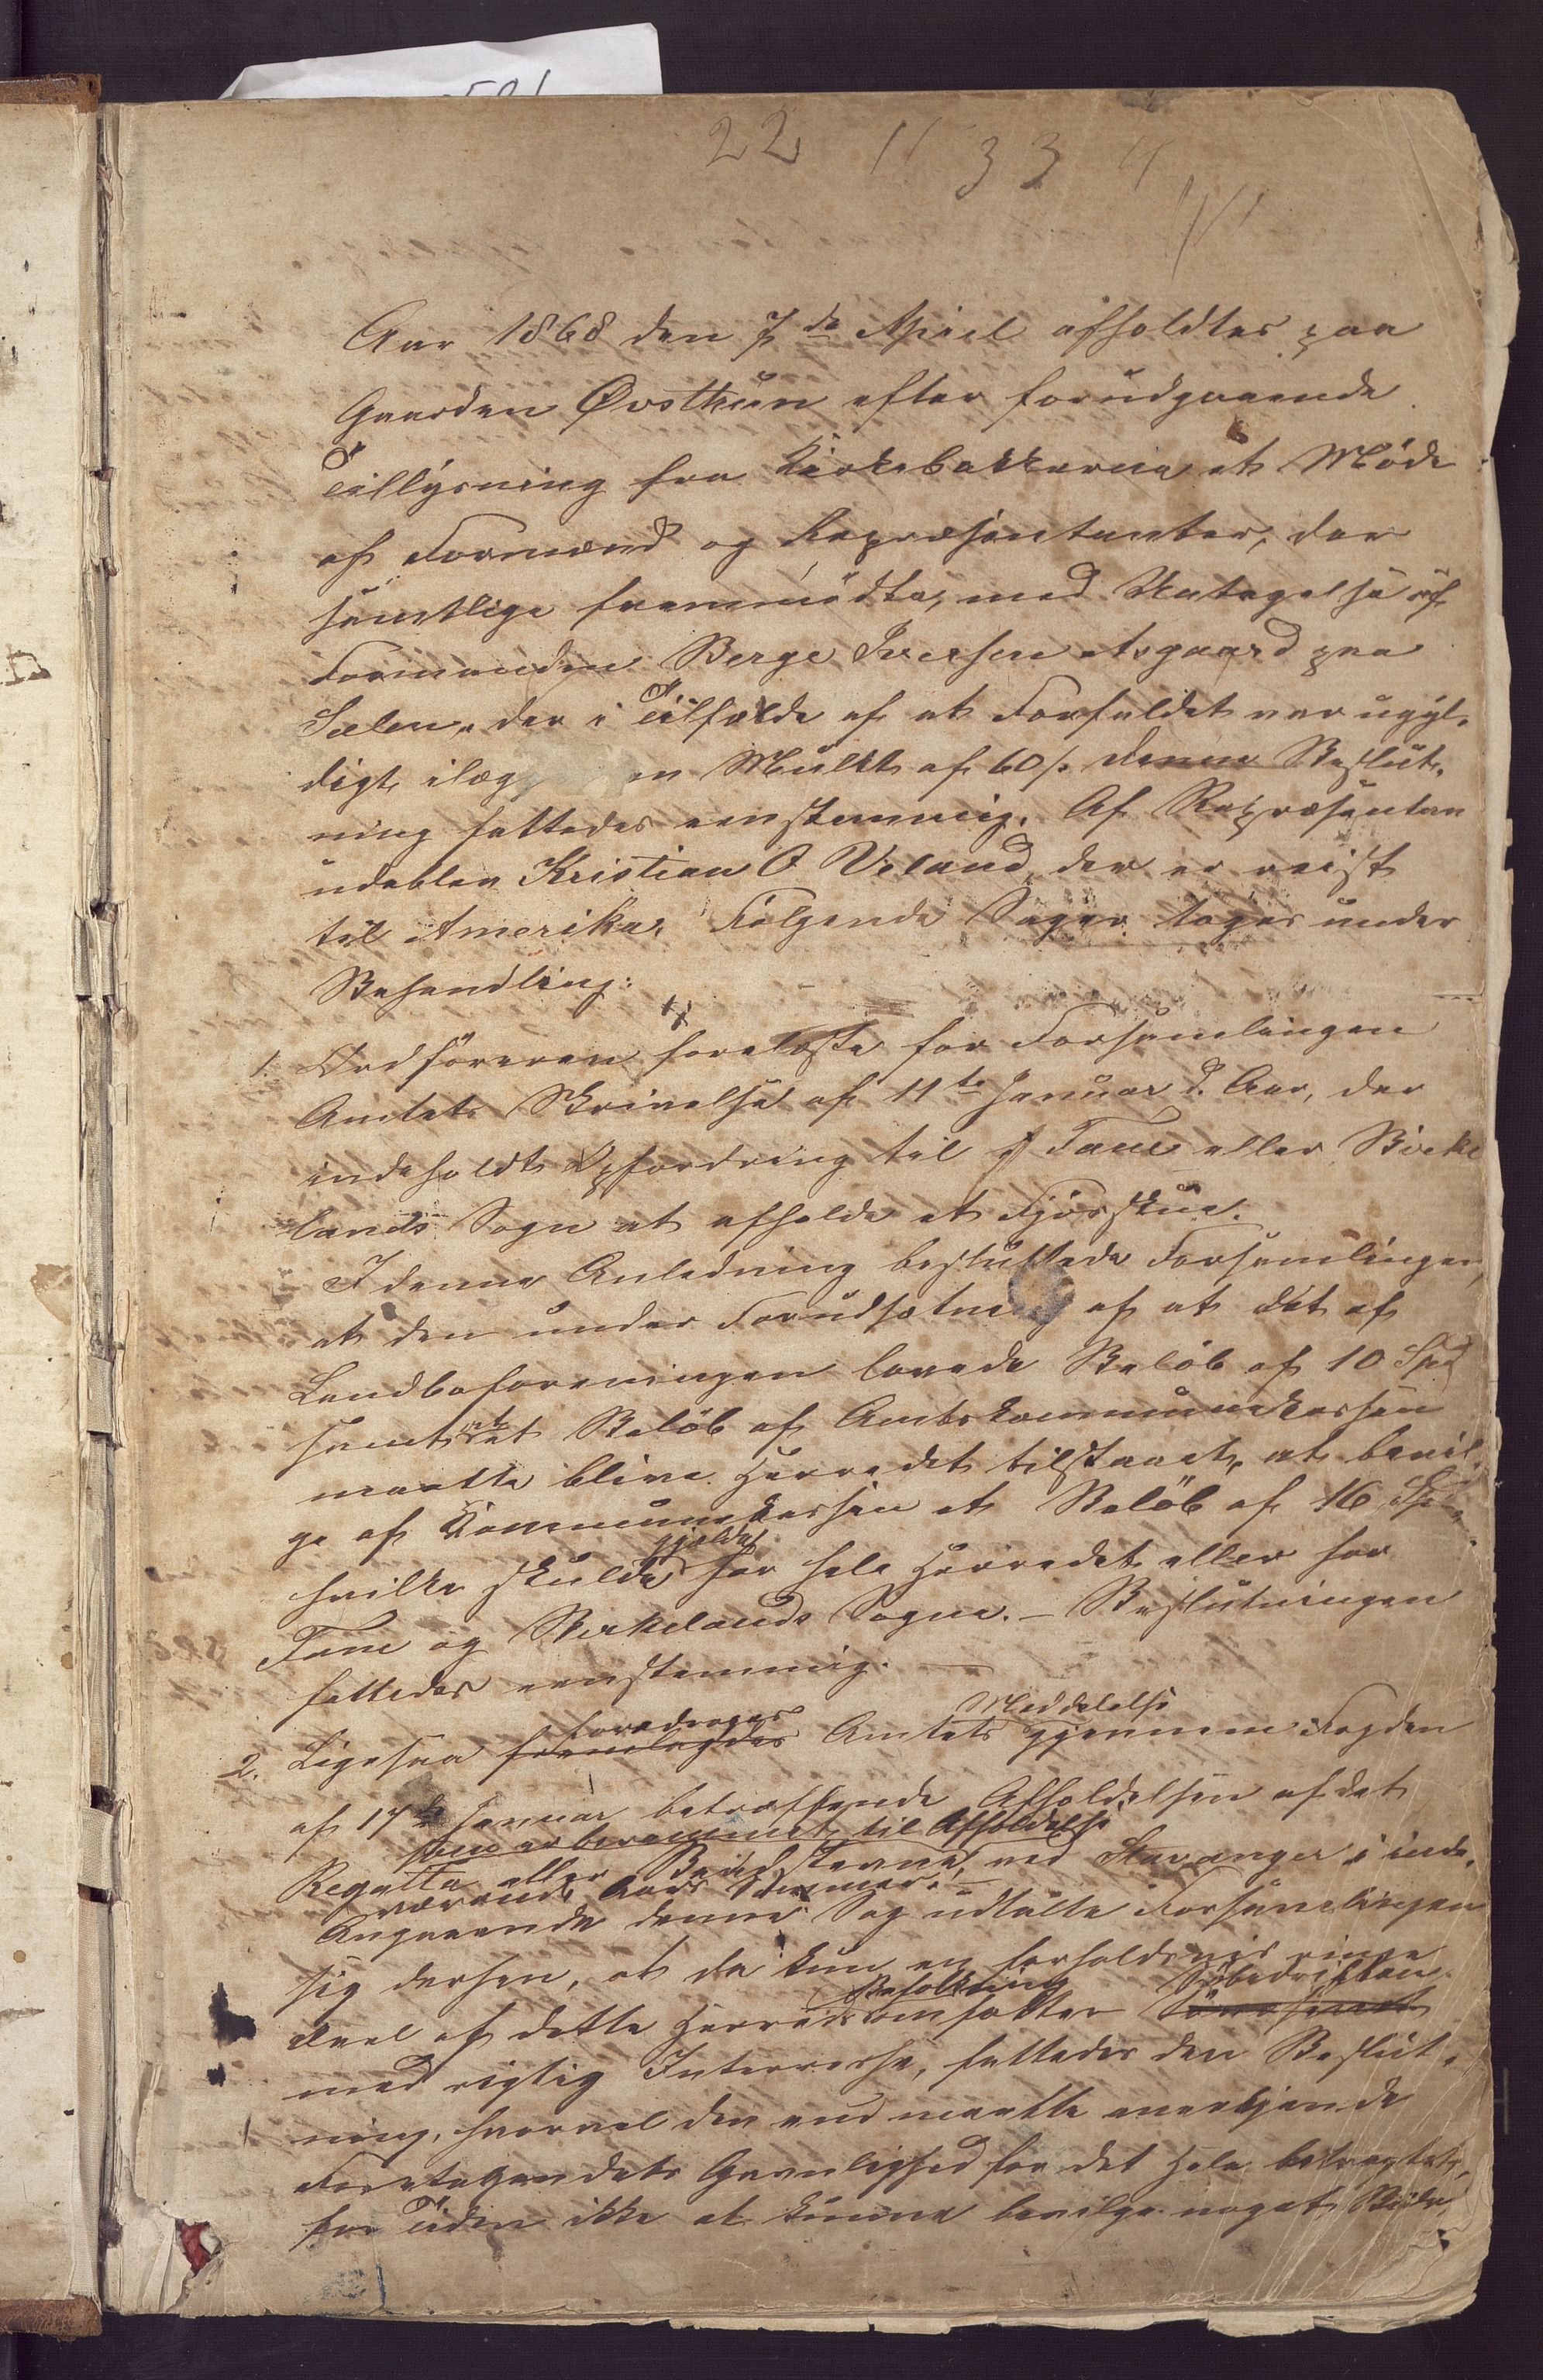 22 11 33 4
Aar 1868 den 7de April afholdtes paa
Gaarden Øvsthun efter forudgaaende
Tillysning fra Kirkebakkerne et Møde
af Formænd og Repræsentanter, der
samtlige fremmødte, med Undtagelse af
Formanden Berge Iversen Asgaard paa
Sælen, der i Tilfælde af at Forfaldet var ugyl-
digt ilægges en Mulkt af 60 s. Denne Beslut-
ning fattedes eenstemmig. Af Repræsentan
udeblev Kristian O Veland, der er reist
til Amerika. Følgende Sager toges under
Behandling:
1. Ordføreren forelæste for Forsamlingen
Amtets Skrivelse af 11te Januar d. Aar, der
indeholdt Opfordring til Fane eller Birke
lands Sogn at afholde et Fjøsskue.
I denne Anledning besluttede Forsamlingen,
at den under Forudsætning af at det af
Landboforeningen lovede Beløb af 10 Spd
samt et Beløb af Amtskommunekassen
maatte blive Herredet tilstaaet, at bevil-
ge af Kommunekassen et Beløb af 16 Spd,
gjælde
hvilke skulde for hele Herredet eller for
Fane og Birkelands Sogne. – Beslutningen
fattedes eenstemmig. —
foredroges Meddelelse
2. Ligesaa fremlagdes Amtets gjennem Fogden
af 17de Januar betræffende Afholdelsen af det
som er berammet til Afholdelse
Regatta eller Baadstævne, ved Stavanger i inde-
værende Aars Sommer. –
Angaaende denne Sag udtalte Forsamlingen
sig derhen, at da kun en forholdsvis ringe
Befolkning Søbedriften
Deel af dette Herreds omfatter
med rigtig Interresse, fattedes den Beslut-
ning, hvorvel den end maatte anerkjende
Foretagendets Gavnlighed for det Hele betragtet,
for Tiden ikke at kunne bevilge noget Bidra